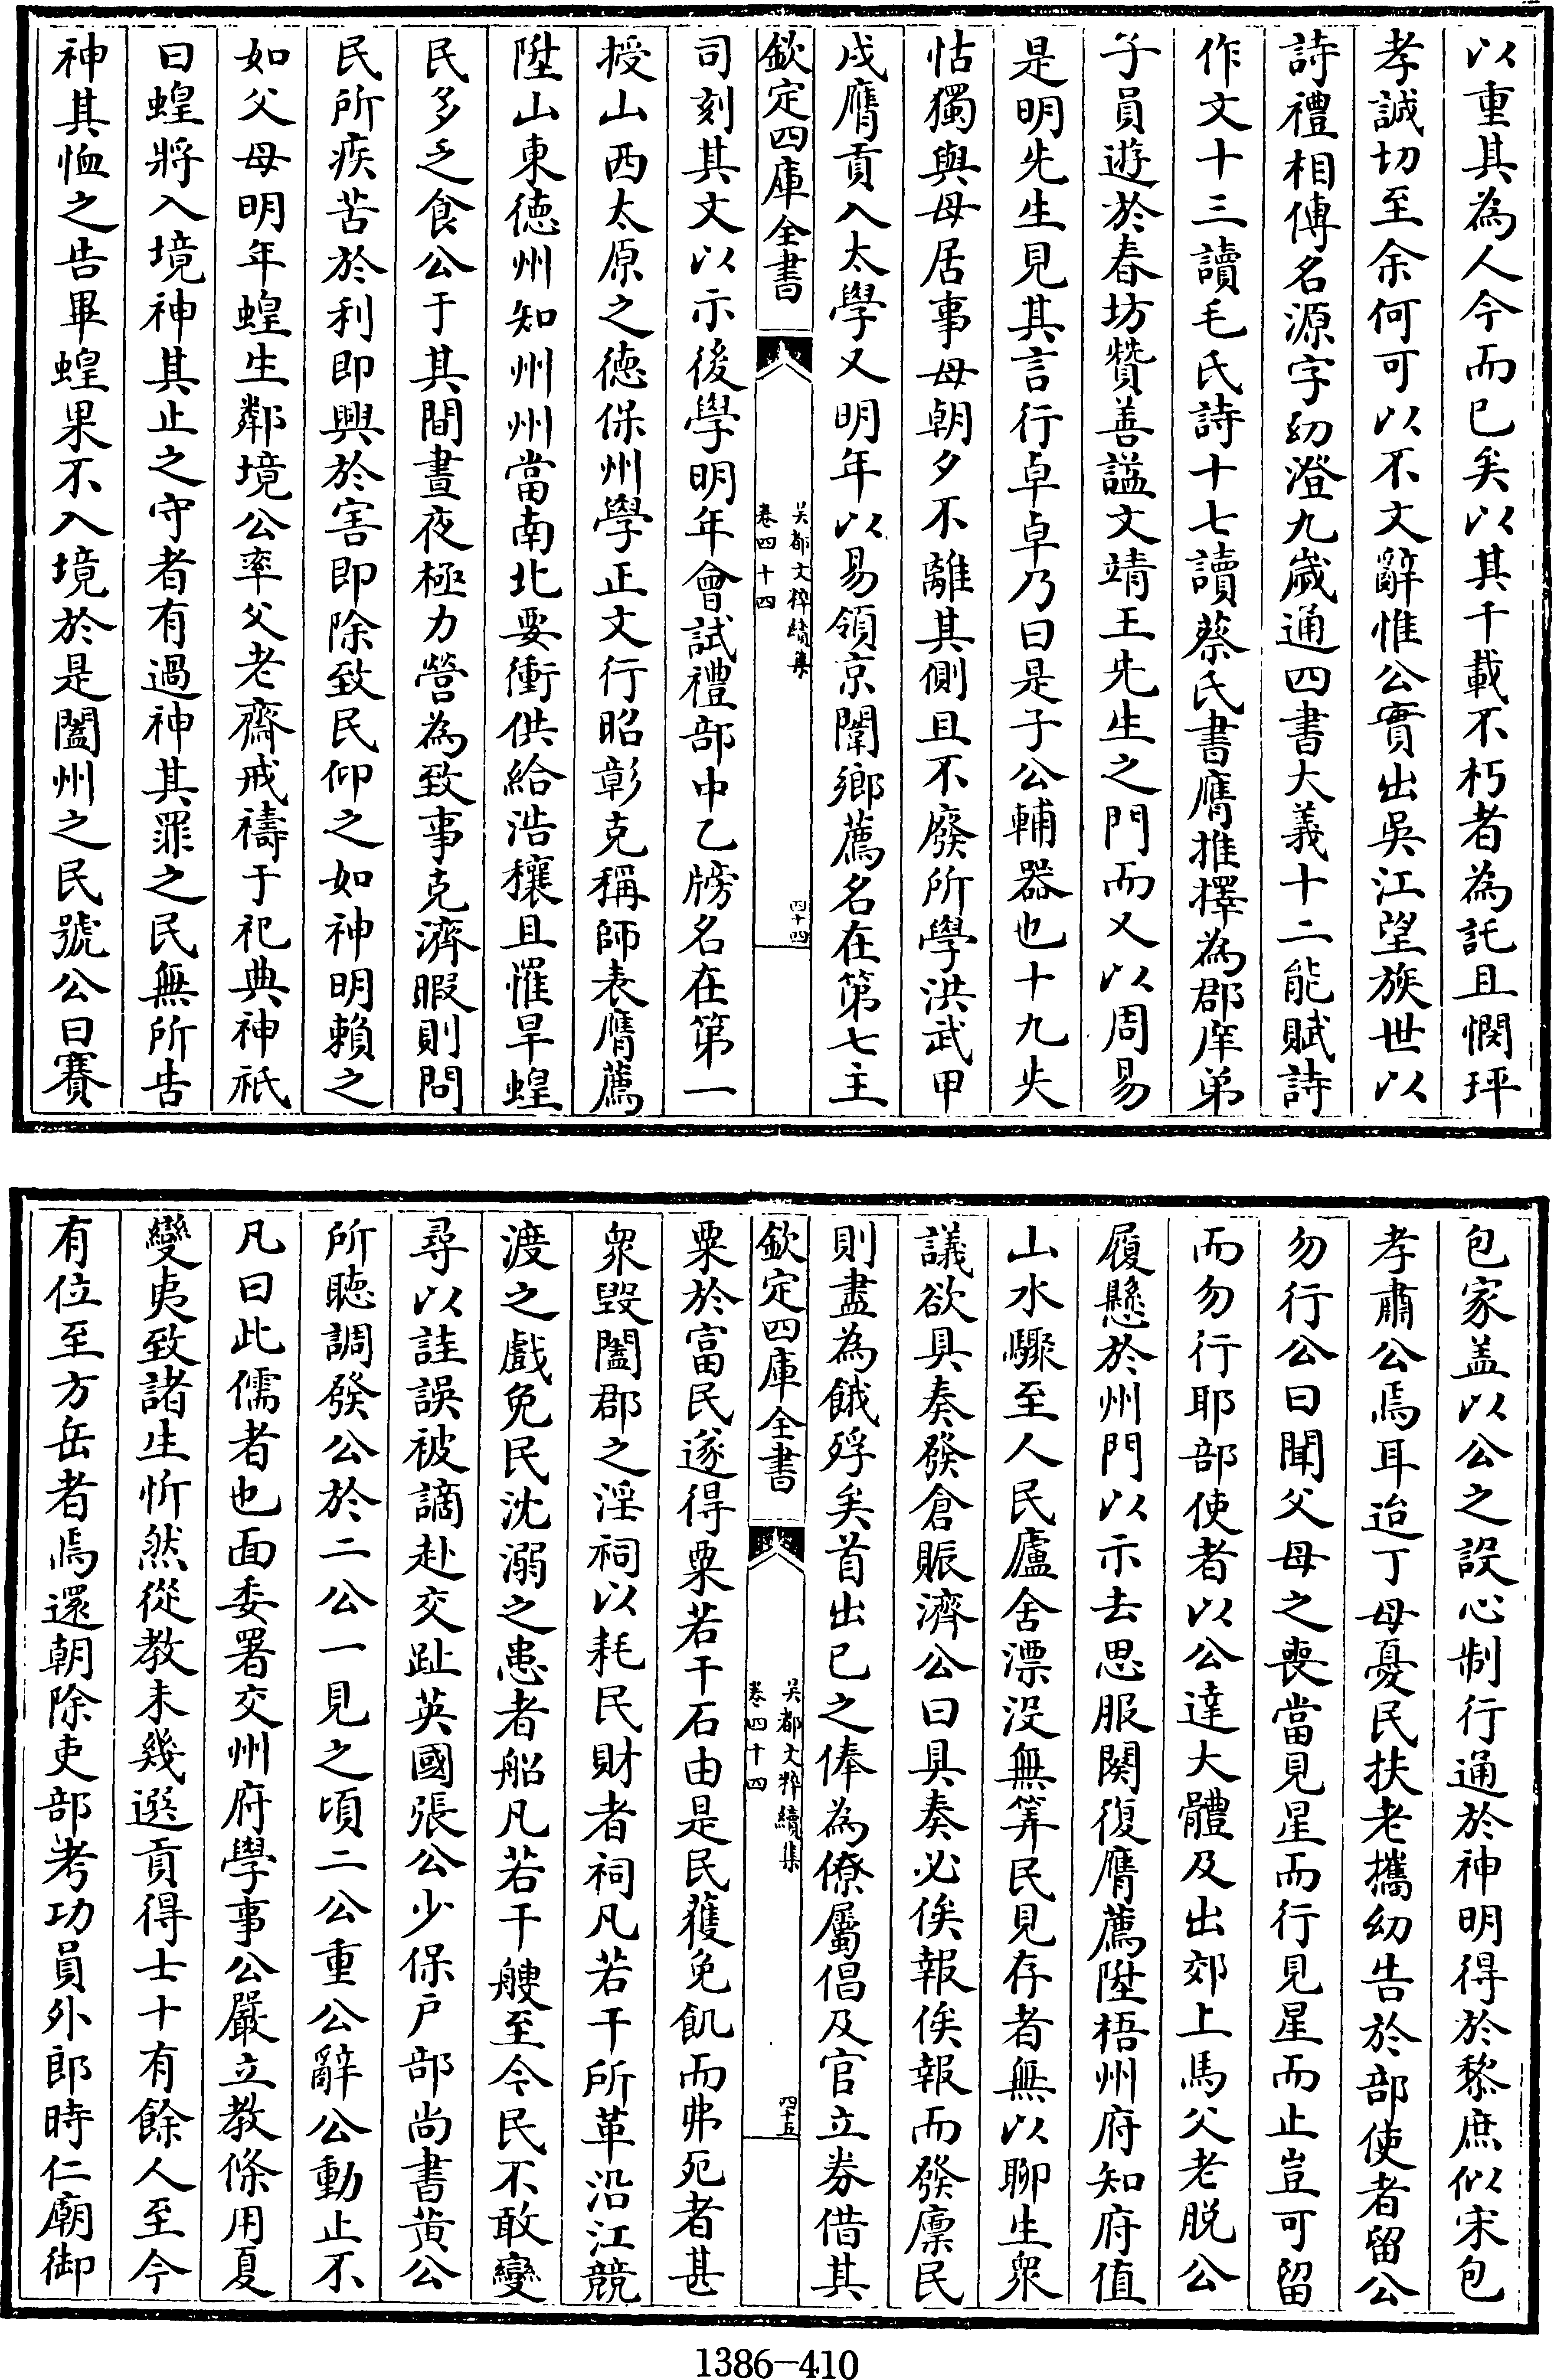 以重其為人今而已矣以其千載不朽者為託且憫玶
孝誠切至余何可以不文辭惟公實出吳江望族世以
詩禮相傳名源字幼澄九歲通四書大義十二能賦詩
作文十三讀毛氏詩十七讀蔡氏書膺推擇為郡庠弟
子員遊於春坊贊善諡文靖王先生之門而又以周易
是明先生見其言行卓卓乃曰是子公輔器也十九失
怙獨與母居事母朝夕不離其側且不廢所學洪武甲
戌膺貢入太學又明年以易領京闈鄉薦名在第七主
欽定四庫全書
吳都文粹續集
卷四十四
四十四
司刻其文以示後學明年會試禮部中乙牓名在第一
授山西太原之德保州學正文行昭彰克稱師表膺薦
陞山東德州知州州當南北要衝供給浩穰且罹旱蝗
民多乏食公于其間晝夜極力營為致事克濟暇則問
民所疾苦於利即興於害即除致民仰之如神明賴之
如父母明年蝗生鄰境公率父老齋戒禱于祀典神祇
曰蝗將入境神其止之守者有過神其罪之民無所告
神其恤之告畢蝗果不入境於是闔州之民號公曰賽
包家盖以公之設心制行通於神明得於黎庶似宋包
孝肅公焉耳迨丁母憂民扶老攜幼告於部使者留公
勿行公曰聞父母之喪當見星而行見星而止豈可留
而勿行耶部使者以公達大體及出郊上馬父老脱公
履懸於州門以示去思服闋復膺薦陞梧州府知府值
山水驟至人民廬舍漂没無筭民見存者無以聊生衆
議欲具奏發倉賑濟公曰具奏必俟報俟報而發廩民
則盡為餓殍矣首出已之俸為僚屬倡及官立券借其
欽定四庫全書
吳都文粹續集
卷四十四
四十五
粟於富民遂得粟若干石由是民獲免飢而弗死者甚
衆毀闔郡之淫祠以耗民財者祠凡若干所革沿江競
渡之戲免民沈溺之患者船凡若干艘至今民不敢變
尋以詿誤被謫赴交趾英國張公少保戶部尚書黄公
所聽調發公於二公一見之頃二公重公辭公動止不
凡曰此儒者也面委署交州府學事公嚴立教條用夏
變夷致諸生忻然從教未幾選貢得士十有餘人至今
有位至方岳者焉還朝除吏部考功員外郎時仁廟御
1386-410